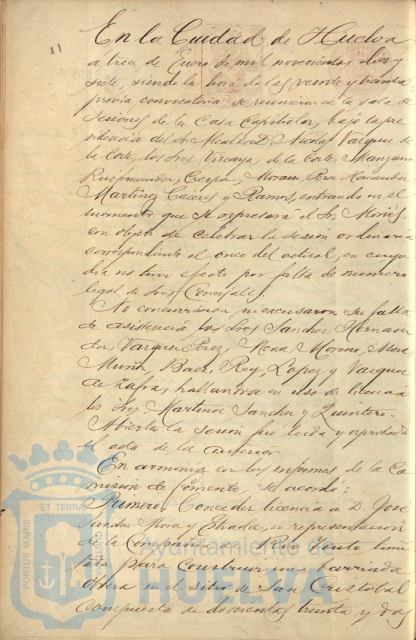 11
En la Ciudad de Huelva
a trece de Enero de mil novecientos diez y
siete, siendo la hora de las veinte y treinta,
previa convocatoria se reunieron en la sala de
Sesiones de la Casa Capitular, bajo la pre
sidencia del Sr. Alcalde D. Nicolas Vazquez de
la Corte, los Sres. Vizcaya de la Corte,
Martinez, Caceres y Ramos, entrando en el
momento que se expresará el Sr.
con objeto de celebrar la sesión ordinaria
correspondiente al once del actual, en cuyo
dia no tuvo efecto por falta de numero
legal de Sres. Concejales.
No concurrieron ni excusaron su falta
de asistencia los Sres. Sanchez Hernan
dez, Vazquez Perez, Mena Moreno, Mora
Baez, Rey, Lopez y Vazquez
de Zafra, hallandose en uso de licencia
los Sres. Martinez Sanchez y Quintero.
Abierta la sesión fué leida y aprobada
el acta de la anterior.
En armonia con los informes de la Co
mision de fomento se acordó:
Primero: Conceder licencia a D. José
en representacion
de la Compañia de Rio Tinto limi
tada para construir una barriada
obrera en el sitio de San Cristobal
compuesta de doscientas treinta y dos
PORTUS MARIS ET TERRAE
Ayuntamiento de
HUELVA